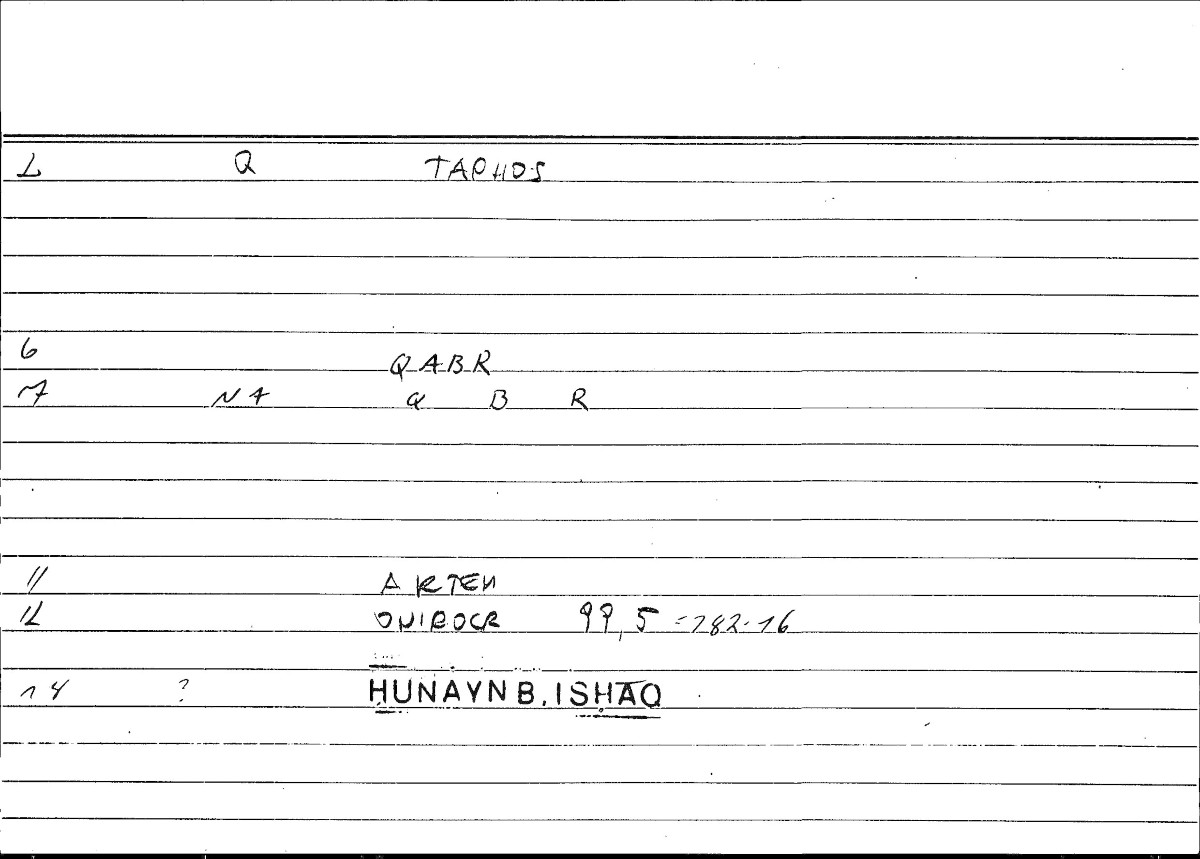 L Q TAPHOS
6 QABR
7 NA Q B R
11 ARTEM
12 ONIROCR 99,5 = 182.16
14 ? ḤUNAYN B. ISḤĀQ